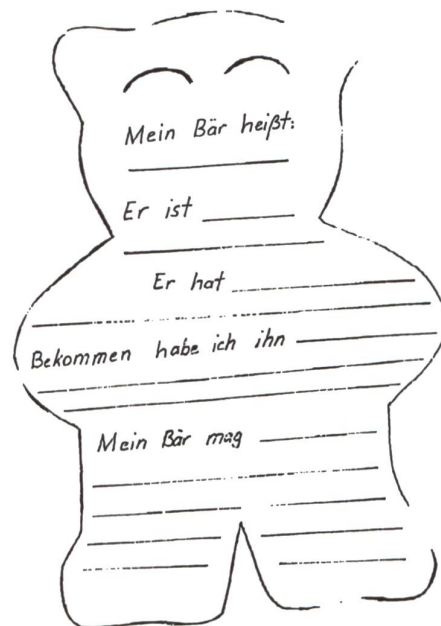 Mein Bär heißt:
Er ist
Er hat
Bekommen habe ich ihn
Mein Bär mag